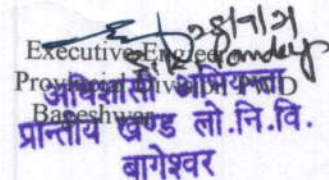 Executive Engineer
S.K. Pandey
Provincial Division PWD
Bageshwar
अधिशासी अभियन्ता
प्रान्तीय खण्ड लो.नि.वि.
बागेश्वर